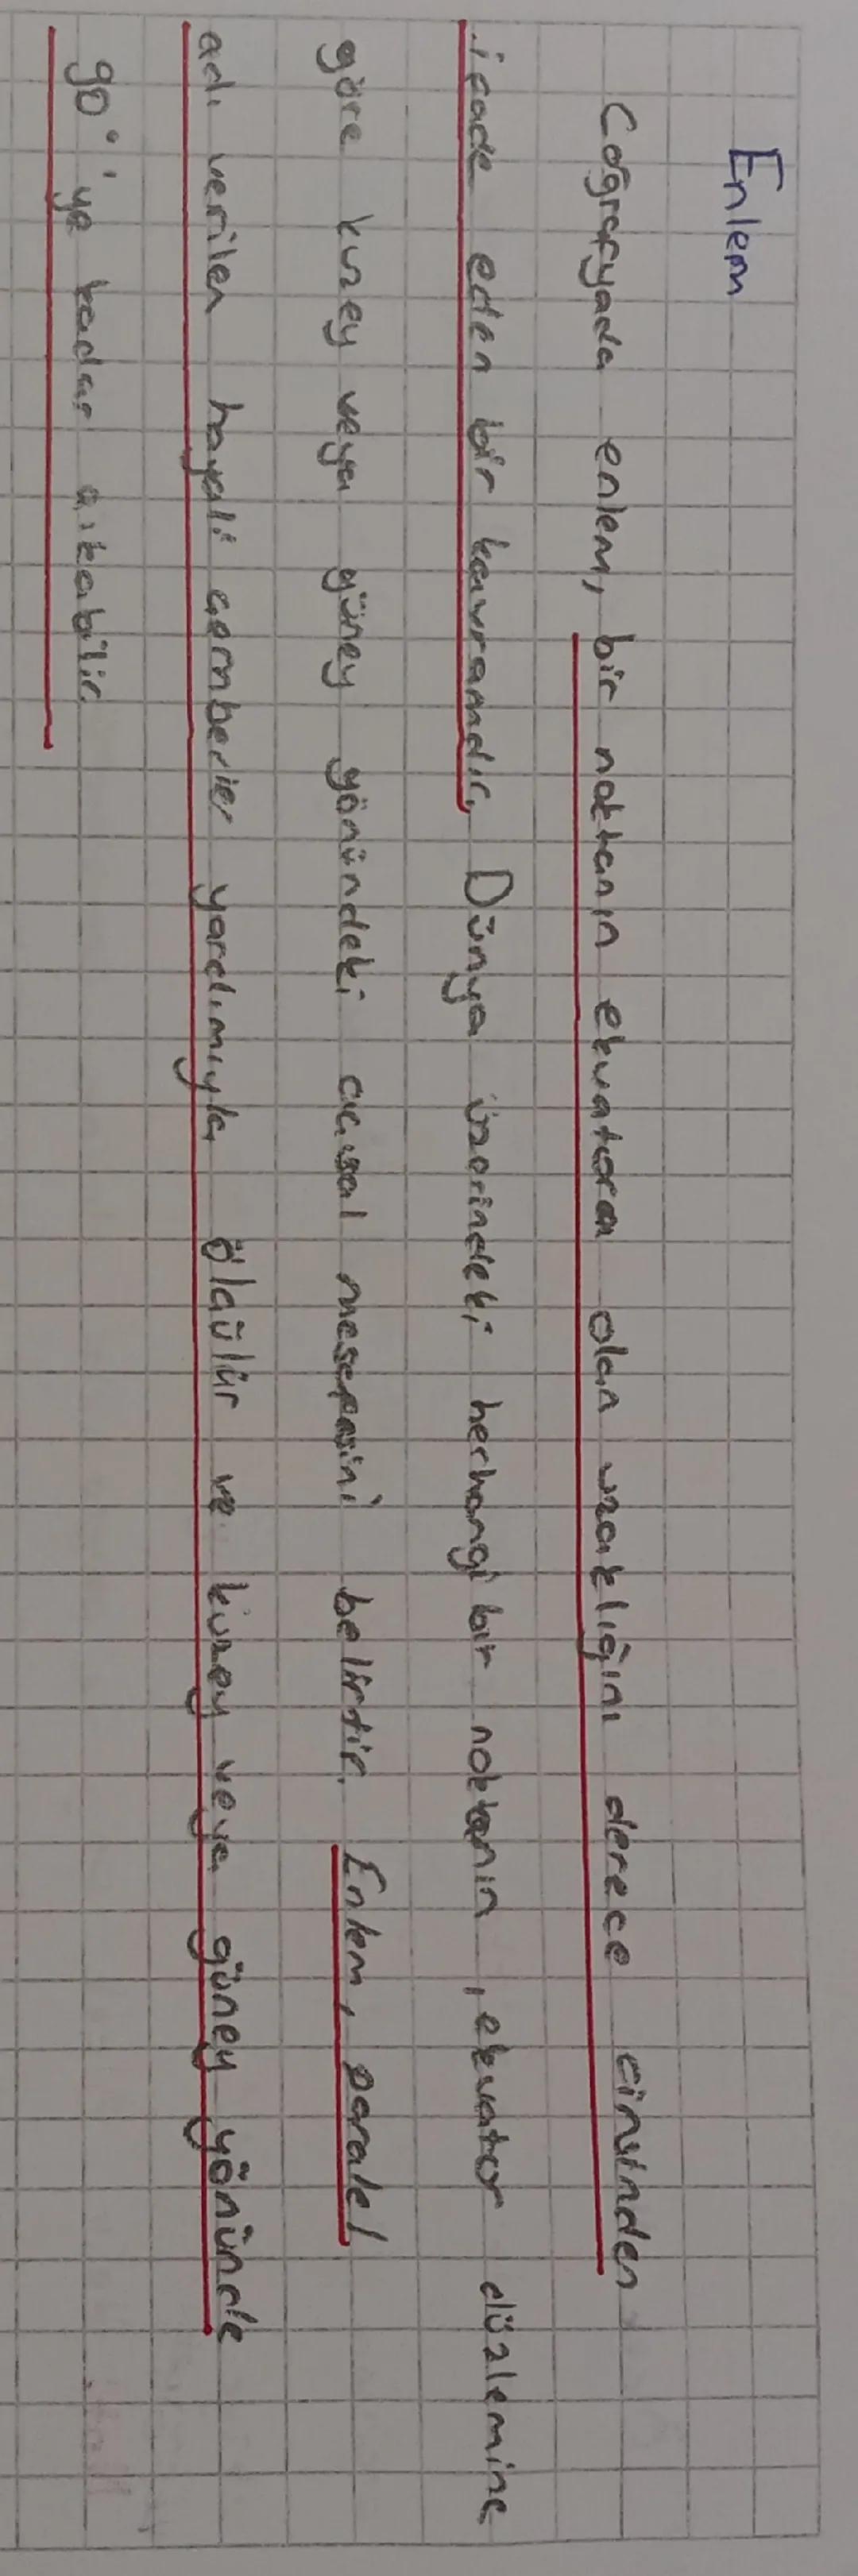 Enlem
Coğrafyada enlem, bir noktanın ekvatora olan uzaklığını derece cinsinden
ifade eden bir kavramdır. Dünya üzerindeki herhangi bir noktanın, ekvator düzlemine
göre kuzey veya güney yönündeki açısal mesafesini belirtir. Enlem, paralel
adı verilen hayali çemberler yardımıyla ölçülür ve kuzey veya güney yönünde
90°'ye kadar çıkabilir.